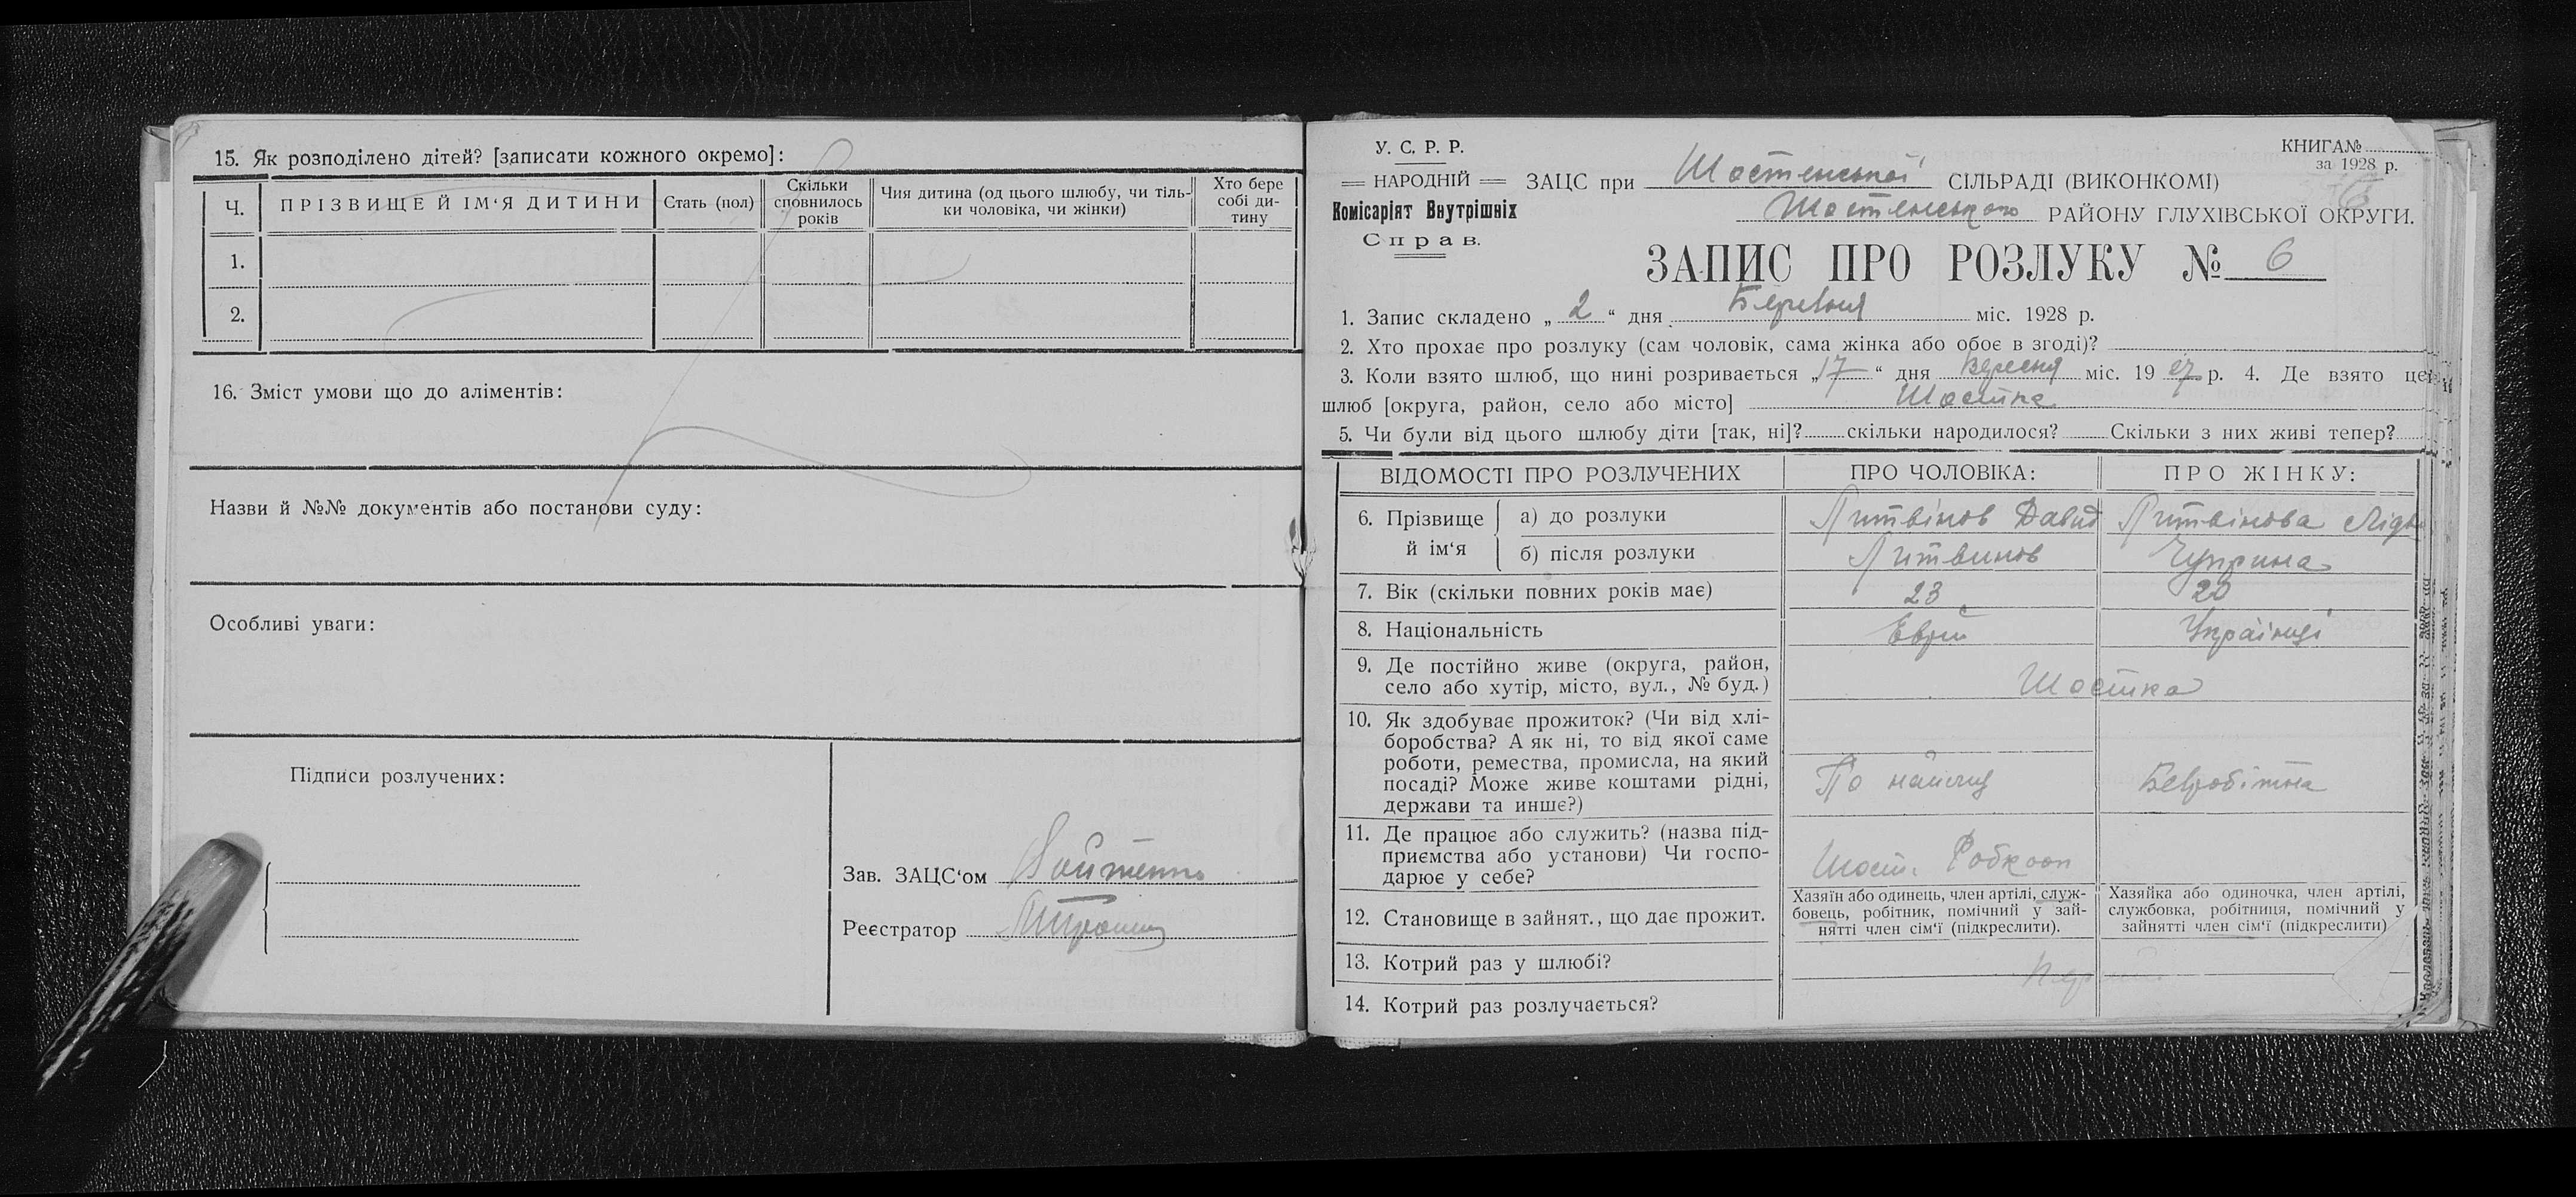 15. Як розподілено дітей? [записати кожного окремо]:
Ч. ПРІЗВИЩЕ Й ІМ‘Я ДИТИНИ Стать (пол) Скільки сповнилось років Чия дитина (од цього шлюбу, чи тіль-ки чоловіка, чи жінки) Хто бере собі ди-тину
1.
2.
16. Зміст умови що до аліментів:
Назви й №№ документів або постанови суду:
Особливі уваги:
Підписи розлучених:
Зав. ЗАЦС‘ом Войтенко
Реєстратор
У. С. Р. Р.
НАРОДНІЙ
Комісаріят Внутрішніх
Справ.
КНИГА№
за 1928 р.
ЗАЦС при Шостенської СІЛЬРАДІ (ВИКОНКОМІ)
Шостенського РАЙОНУ ГЛУХІВСЬКОЇ ОКРУГИ.
ЗАПИС ПРО РОЗЛУКУ № 6
1. Запис складено „ 2 “ дня Березня міс. 1928 р.
2. Хто прохає про розлуку (сам чоловік, сама жінка або обоє в згоді)?
3. Коли взято шлюб, що нині розривається „ 17 “ дня Вересня міс. 19 27 р. 4. Де взято цей
шлюб [округа, район, село або місто] Шостка
5. Чи були від цього шлюбу діти [так, ні]? скільки народилося? Скільки з них живі тепер?
ВІДОМОСТІ ПРО РОЗЛУЧЕНИХ ПРО ЧОЛОВІКА: ПРО ЖІНКУ:
6. Прізвище й ім‘я а) до розлуки Литвінов Давид Литвінова Лідія
б) після розлуки Литвинов Чуприна
7. Вік (скільки повних років має) 23 20
8. Національність Еврей Українці
9. Де постійно живе (округа, район,
село або хутір, місто, вул., № буд.) Шостка
10. Як здобуває прожиток? (Чи від хлі-
боробства? А як ні, то від якої саме
роботи, ремества, промисла, на який
посаді? Може живе коштами рідні,
держави та инше?) По найму Безробітна
11. Де працює або служить? (назва під-
приємства або установи) Чи госпо-
дарює у себе? Шост. Робкооп
12. Становище в зайнят., що дає прожит.
Хазяїн або одинець, член артілі, служ-
бовець, робітник, помічний у зай-
нятті член сім‘ї (підкреслити).
Хазяйка або одиночка, член артілі,
службовка, робітниця, помічний у
зайнятті член сім‘ї (підкреслити)
13. Котрий раз у шлюбі?
14. Котрий раз розлучається?